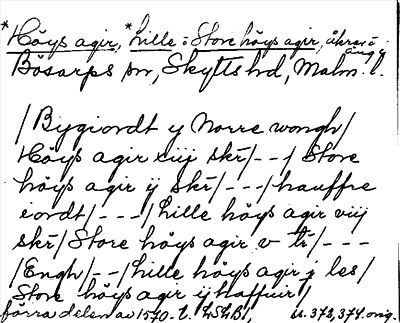 *Höys agir, *Lille- o Store höys agir, åkrar o äng i
Bösarps sn, Skytts hd, Malm. l.
/Bygiordt y Norre wongh/
Höys agir xiiij skr/---/ Store
höys agir ij skr/---/hauffre
iordt/---/Lille höys agir viij
skr/Store höys agir v tr/---
/Engh/--/Lille höys agir j les/
Store höys agir ij haffuir/
förra delen av 1570-t. LSLB1, u. 373, 374 orig.